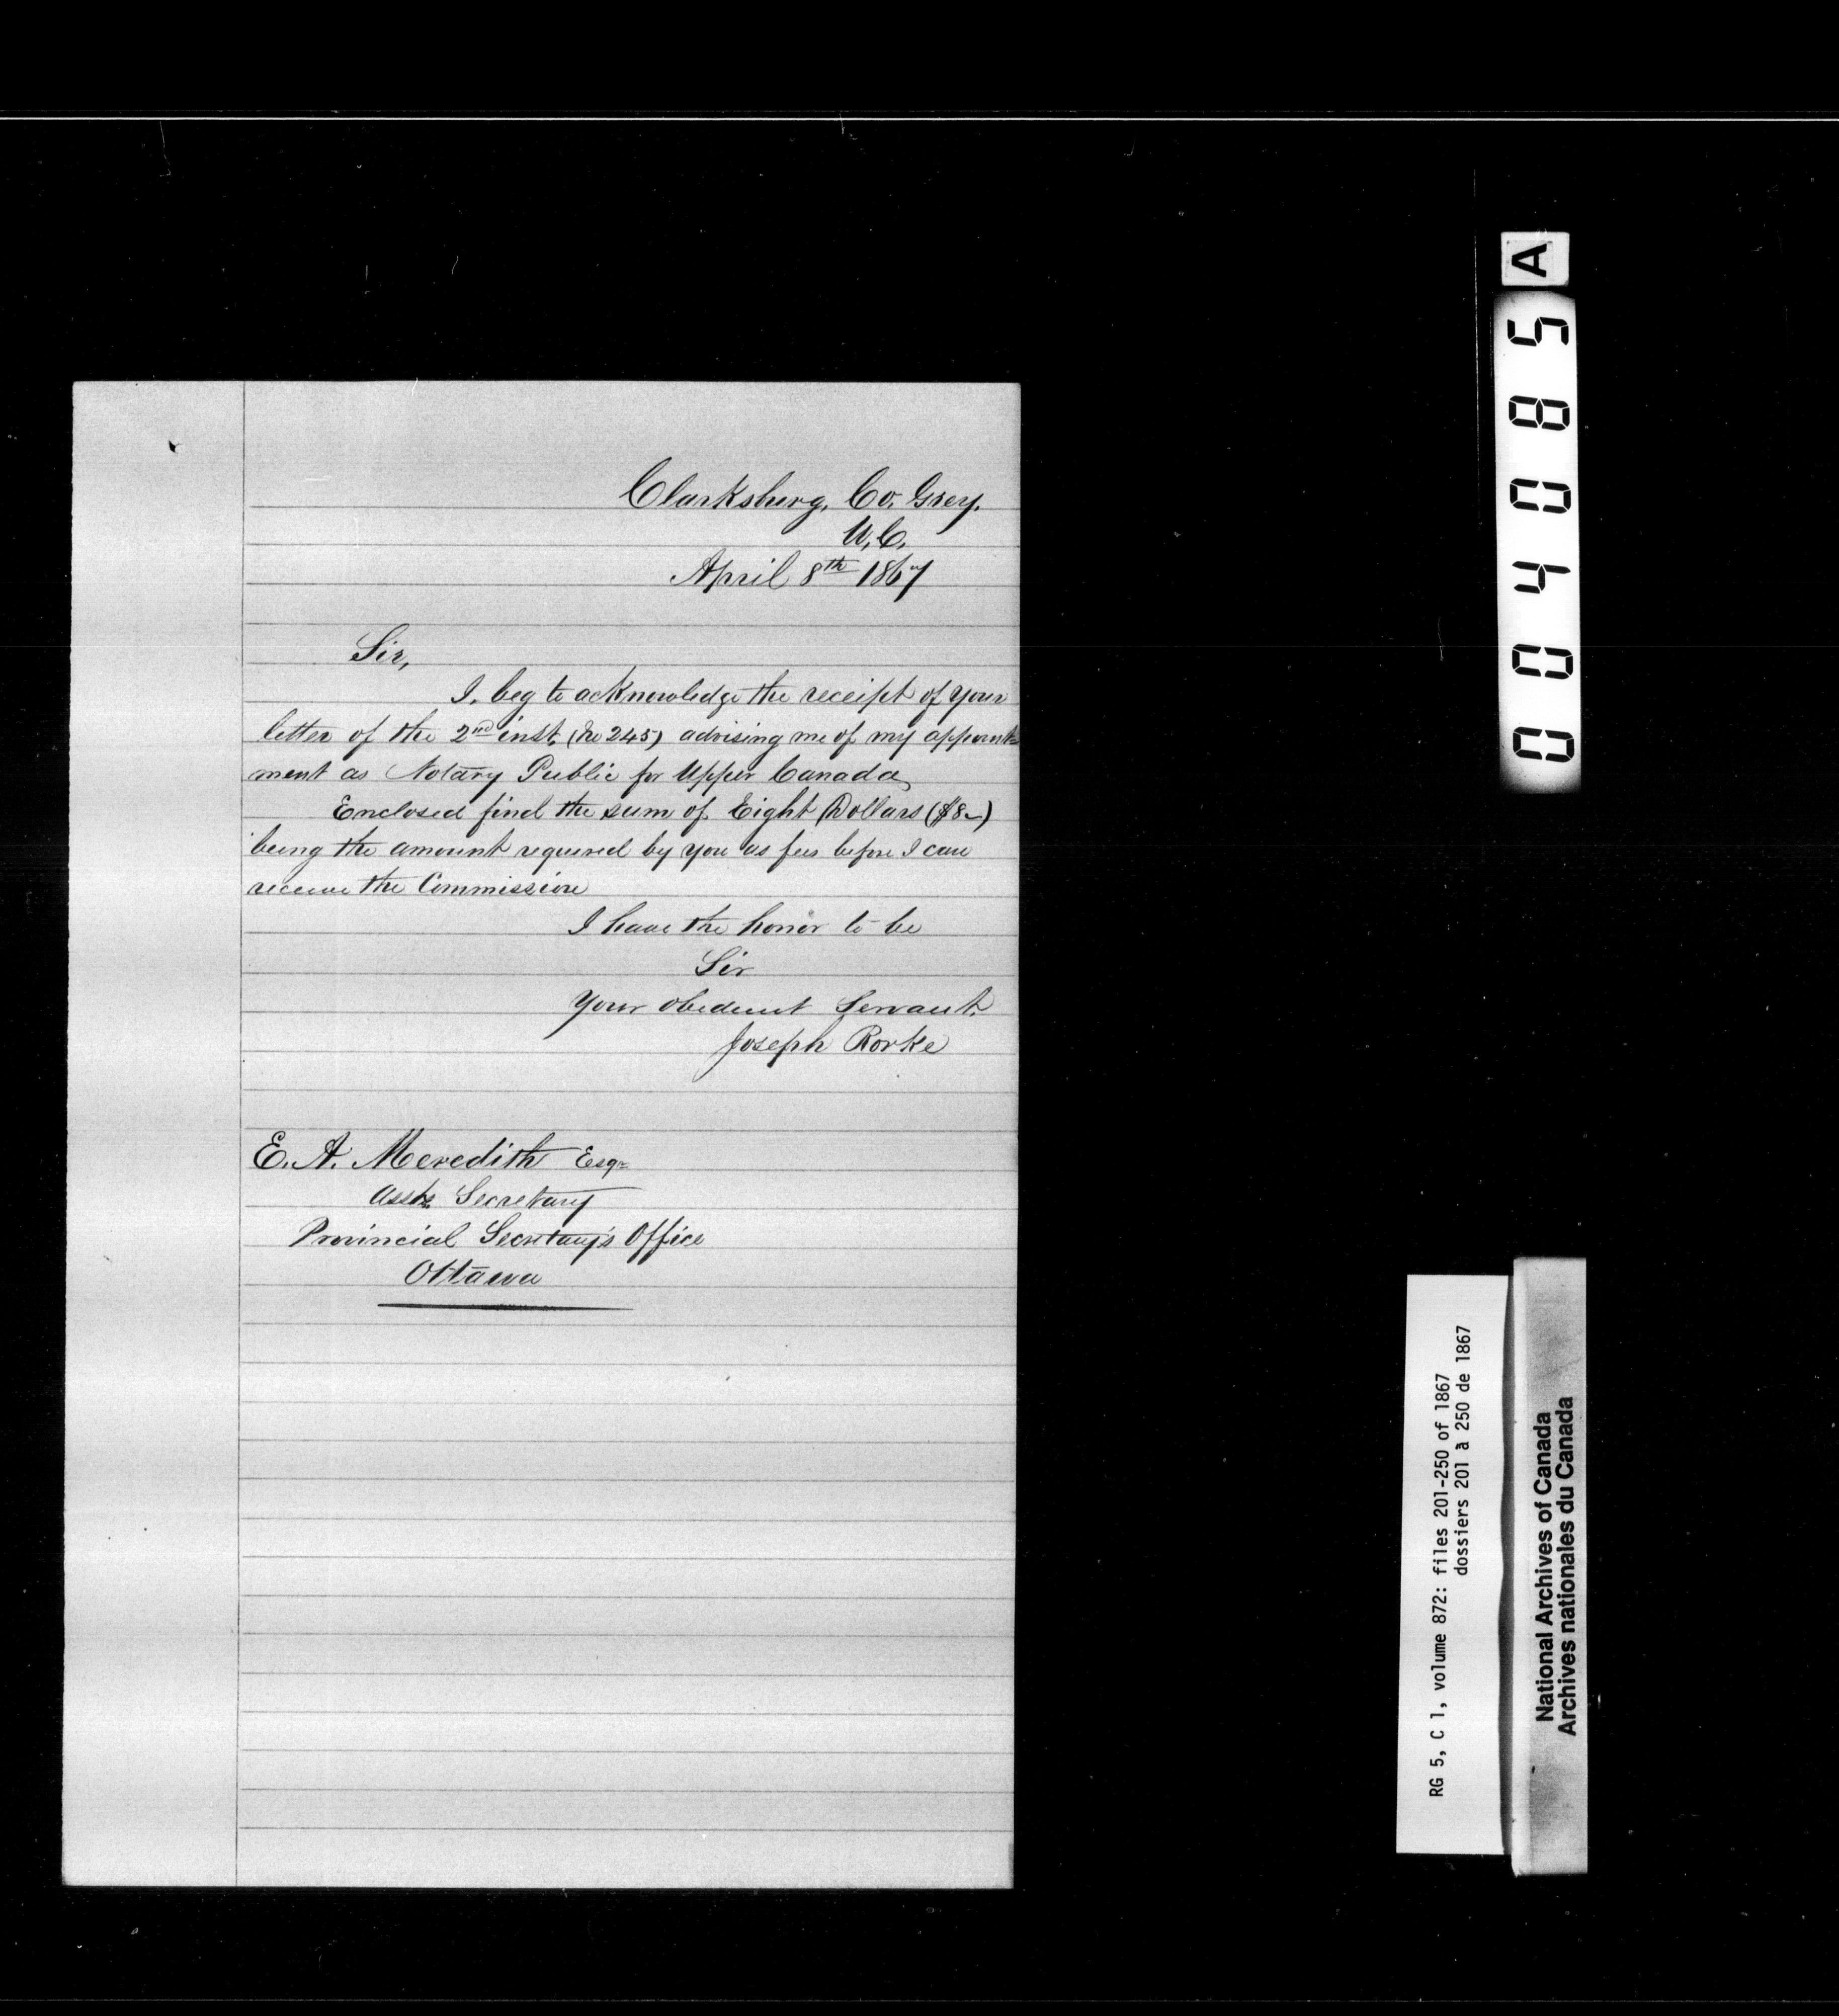 Clarksburg, Co. Grey.
U.C.
April 8th 1867
Sir,
I. beg to acknowledge the receipt of your
letter of the 2nd inst. (No 245) advising me of my appoint=
ment as Notary Public for Upper Canada
Enclosed find the sum of Eight Dollars ($8~)
being the amount required by you as fees before I can
receive the Commission
I have the honor to be
Sir
Your obedient Servant.
Joseph Rorke
E. A. Meredith Esqr
Asst. Secretary
Provincial Secretary's Office
Ottawa
004085 A
RG 5, C 1, volume 872: files 201-250 of 1867
dossiers 201 à 250 de 1867
National Archives of Canada
Archives nationales du Canada